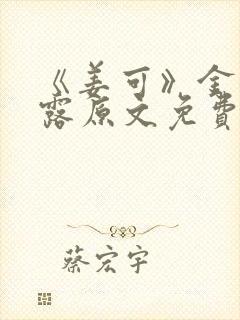 《姜可》金
露原文免費
蔡宏宇